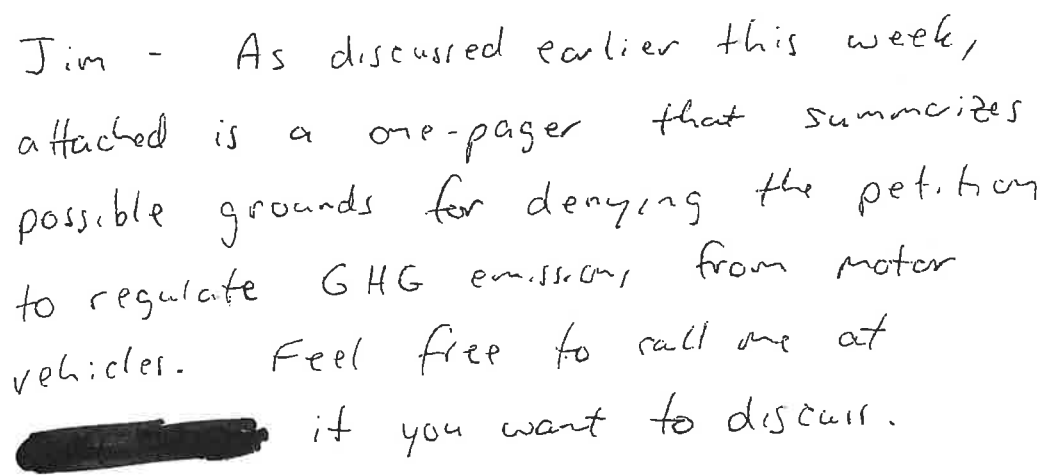 Jim - As discussed earlier this week,
attached is a one-pager that summarizes
possible grounds for denying the petition
to regulate GHG emissions from motor
vehicles. Feel free to call me at
if you want to discuss.